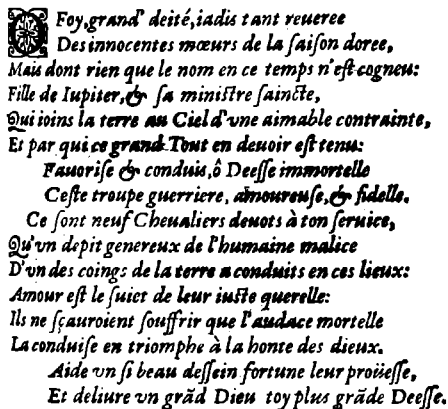 O Foy, grand' deité, iadis tant reueree
Des innocentes mœurs de la ſaiſon doree,
Mais dont rien que le nom en ce temps n'eſt cogneu:
Fille de Iupiter, & ſa miniſtre ſaincte,
Qui ioins la terre au Ciel d'vne aimable contrainte,
Et par qui ce grand Tout en deuoir eſt tenu:
Fauoriſe & conduis, ô Deeſſe immortelle
Ceſte troupe guerriere, amoureuſe, & fidelle.
Ce ſont neuf Cheualiers deuots à ton ſeruice,
Qu'vn depit genereux de l'humaine malice
D'vn des coings de la terre a conduits en ces lieux:
Amour eſt le ſuiet de leur iuſte querelle:
Ils ne ſçauroient ſouffrir que l'audace mortelle
La conduiſe en triomphe à la honte des dieux.
Aide vn ſi beau deſſein fortune leur proüeſſe,
Et deliure vn grãd Dieu toy plus grãde Deeſſe.